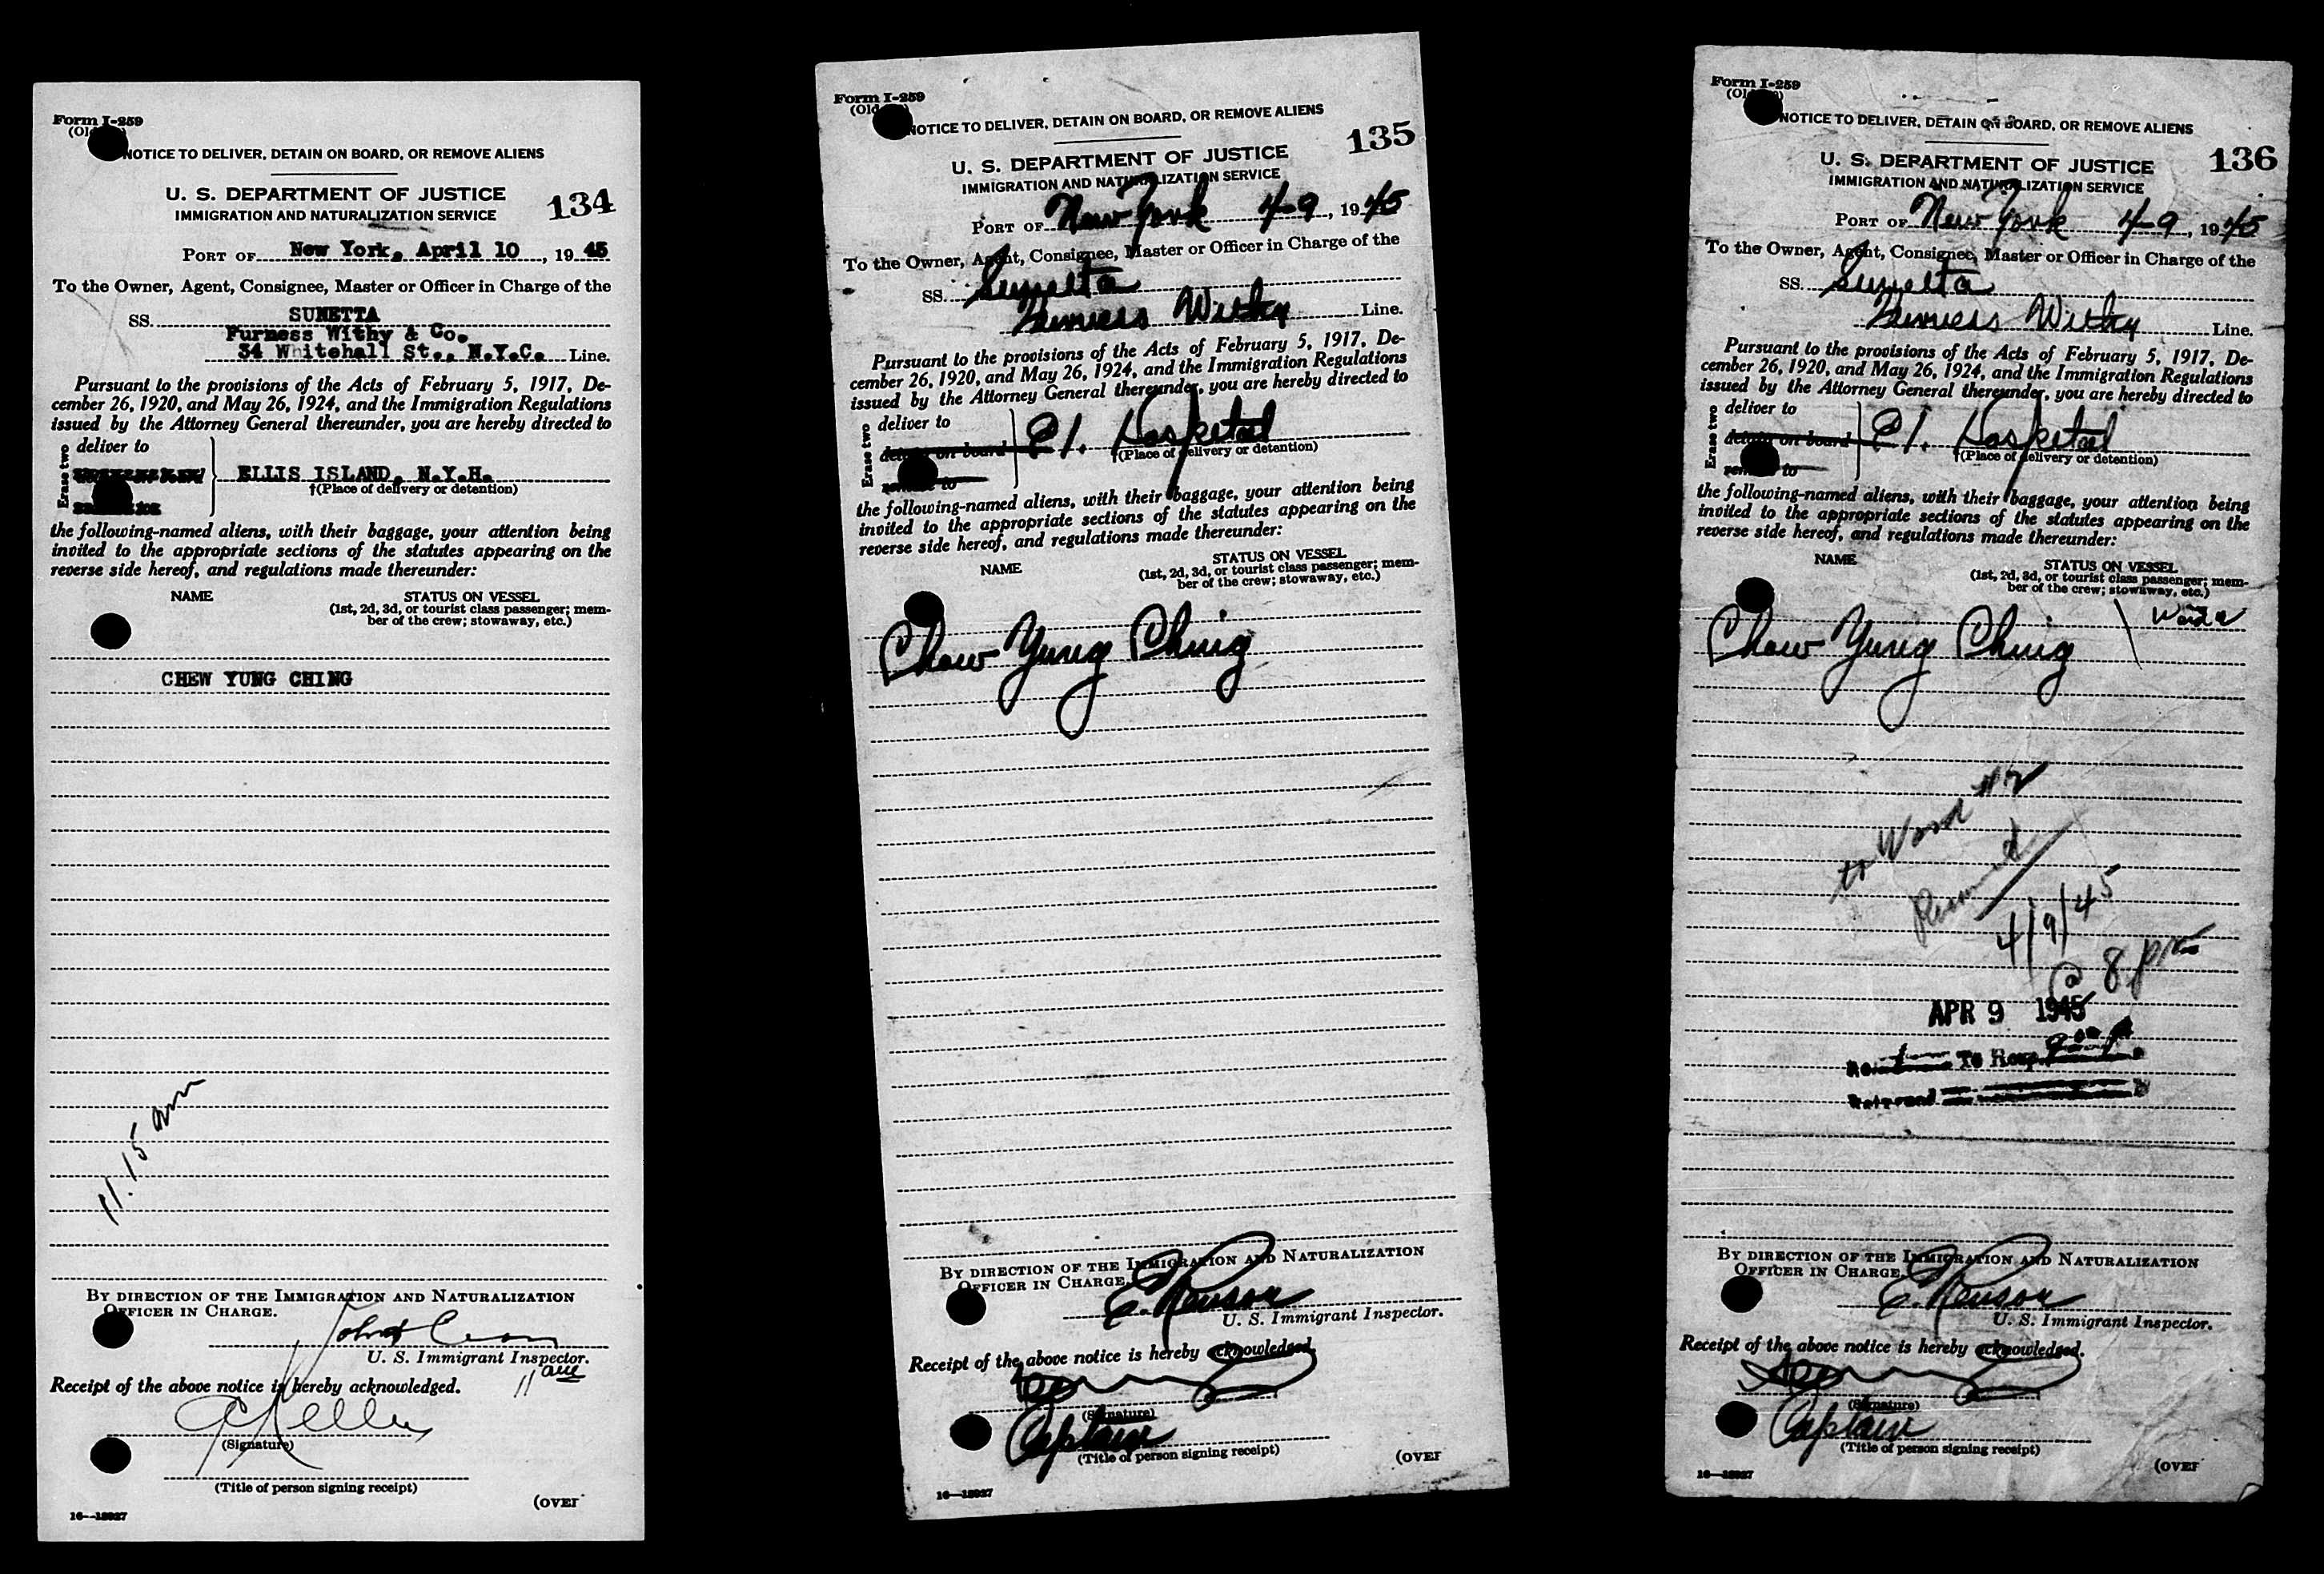 Form I-259
NOTICE TO DELIVER, DETAIN ON BOARD, OR REMOVE ALIENS
U. S. DEPARTMENT OF JUSTICE
134
IMMIGRATION AND NATURALIZATION SERVICE
PORT OF New York, April 10, 19 45
To the Owner, Agent, Consignee, Master or Officer in Charge of the
SS. SUNETTA
Furness Withy & Co.
34 Whitehall St., N.Y.C. Line.
Pursuant to the provisions of the Acts of February 5, 1917, De-
cember 26, 1920, and May 26, 1924, and the Immigration Regulations
issued by the Attorney General thereunder, you are hereby directed to
Erase two
deliver to
ELLIS ISLAND, N.Y.H.
†(Place of delivery or detention)
the following-named aliens, with their baggage, your attention being
invited to the appropriate sections of the statutes appearing on the
reverse side hereof, and regulations made thereunder:
NAME
STATUS ON VESSEL
(1st, 2d, 3d, or tourist class passenger; mem-
ber of the crew; stowaway, etc.)
CHEW YUNG CHING
11.15 am
BY DIRECTION OF THE IMMIGRATION AND NATURALIZATION
OFFICER IN CHARGE.
U. S. Immigrant Inspector.
Receipt of the above notice is hereby acknowledged.
(Signature)
(Title of person signing receipt)
(OVER
16—18927
Form I-259
NOTICE TO DELIVER, DETAIN ON BOARD, OR REMOVE ALIENS
U. S. DEPARTMENT OF JUSTICE
135
IMMIGRATION AND NATURALIZATION SERVICE
PORT OF New York 4-9, 19 45
To the Owner, Agent, Consignee, Master or Officer in Charge of the
SS. Sunetta
Furness Withy Line.
Pursuant to the provisions of the Acts of February 5, 1917, De-
cember 26, 1920, and May 26, 1924, and the Immigration Regulations
issued by the Attorney General thereunder, you are hereby directed to
Erase two
deliver to
detain on board
E I. Hospital
†(Place of delivery or detention)
the following-named aliens, with their baggage, your attention being
invited to the appropriate sections of the statutes appearing on the
reverse side hereof, and regulations made thereunder:
NAME
STATUS ON VESSEL
(1st, 2d, 3d, or tourist class passenger; mem-
ber of the crew; stowaway, etc.)
Chow Yung Ching
BY DIRECTION OF THE IMMIGRATION AND NATURALIZATION
OFFICER IN CHARGE.
U. S. Immigrant Inspector.
Receipt of the above notice is hereby acknowledged.
(Signature)
Captain
(Title of person signing receipt)
(OVER
16—18927
Form I-259
NOTICE TO DELIVER, DETAIN ON BOARD, OR REMOVE ALIENS
U. S. DEPARTMENT OF JUSTICE
136
IMMIGRATION AND NATURALIZATION SERVICE
PORT OF New York 4-9, 19 45
To the Owner, Agent, Consignee, Master or Officer in Charge of the
SS. Sunetta
Furness Withy Line.
Pursuant to the provisions of the Acts of February 5, 1917, De-
cember 26, 1920, and May 26, 1924, and the Immigration Regulations
issued by the Attorney General thereunder, you are hereby directed to
Erase two
deliver to
detain on board
E I. Hospital
†(Place of delivery or detention)
the following-named aliens, with their baggage, your attention being
invited to the appropriate sections of the statutes appearing on the
reverse side hereof, and regulations made thereunder:
NAME
STATUS ON VESSEL
(1st, 2d, 3d, or tourist class passenger; mem-
ber of the crew; stowaway, etc.)
Ward
Chow Yung Ching
to Ward #2
4/9/45
@ 8 pm
APR 9 1945
To Hosp
BY DIRECTION OF THE IMMIGRATION AND NATURALIZATION
OFFICER IN CHARGE.
U. S. Immigrant Inspector.
Receipt of the above notice is hereby acknowledged.
(Signature)
Captain
(Title of person signing receipt)
(OVER
16—18927